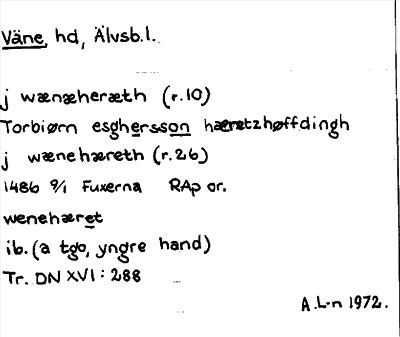 Väne, hd, Älvsb.l.
j wænæheræth (r.10)
Torbiørn esghersson hæretzhøffdingh
j wænehæreth (r.26)
1486 9/1 Fuxerna RAp or.
wenehæret
ib. (a tgo, yngre hand)
Tr. DN XVI: 288
A.L-n 1972.